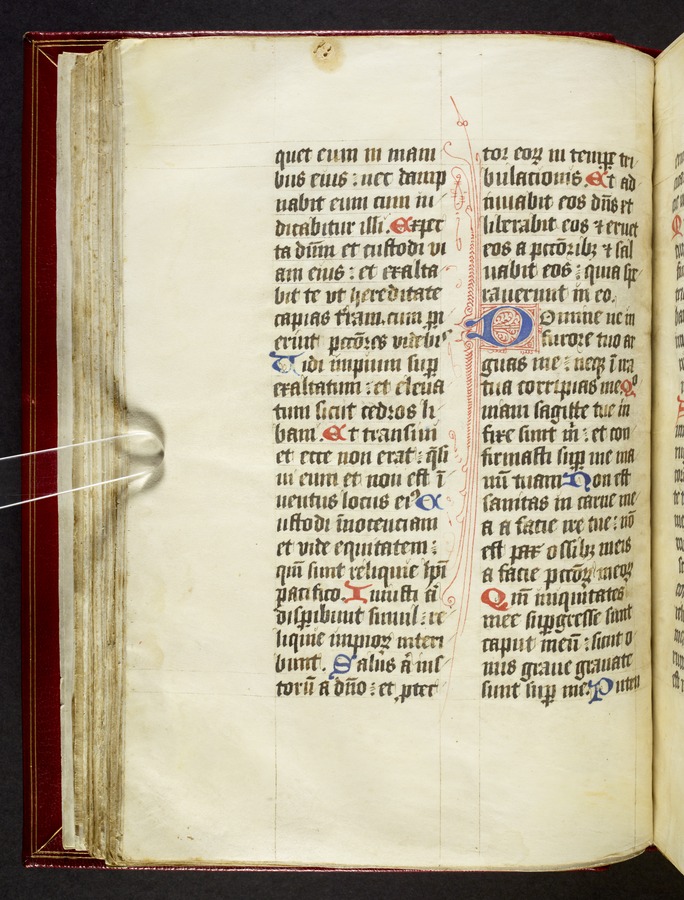 quet eum in mani
bus eius : nec dampͣ
nabit eum cum iu
dicabitur illi. Expec
ta dūm et custodi vi
am eius : et exalta
bit te vt hereditate
capias tr̄am. cum p̄i
erint pctōres videbiˢ
Vidi impium sup̄
exaltatum : et eleua
tum sicut cedros li
bam. Et transiui
et ecce non erat : q̄si
ui eum et non est ī
uentus locus eiꝰ C
ustodi īnocenciam
et vide equitatem :
qm̄ sunt reliquie hoī
pacifico. Iniusti āt
disꝑibunt simul : re
liquie impioꝝ interi
bunt. Salus āt ius
torū a dn̄o : et ꝓtec
tor eoꝝ in tempe tri
bulacionis. Et ad
iuuabit eos dn̄s et
liberabit eos ⁊ eruet
eos a pctōribꝫ ⁊ sal
uabit eos : quia spe
rauerunt in eo.
Domine ne in
furore tuo ar
guas me : neqꝫ ī ira
tua corripias me. Qͦ
niam sagitte tue in
fixe sunt m̄ : et con
firmasti sup̄ me ma
nū tuam. Non est
sanitas in carne me
a a facie ire tue : nō
est pax ossibꝫ meis
a facie pctōꝝ meoꝝ
Qm̄ iniquitates
mee sup̄gresse sunt
caput meū : sicut o
nus graue grauate
sunt sup̄ me. Putru